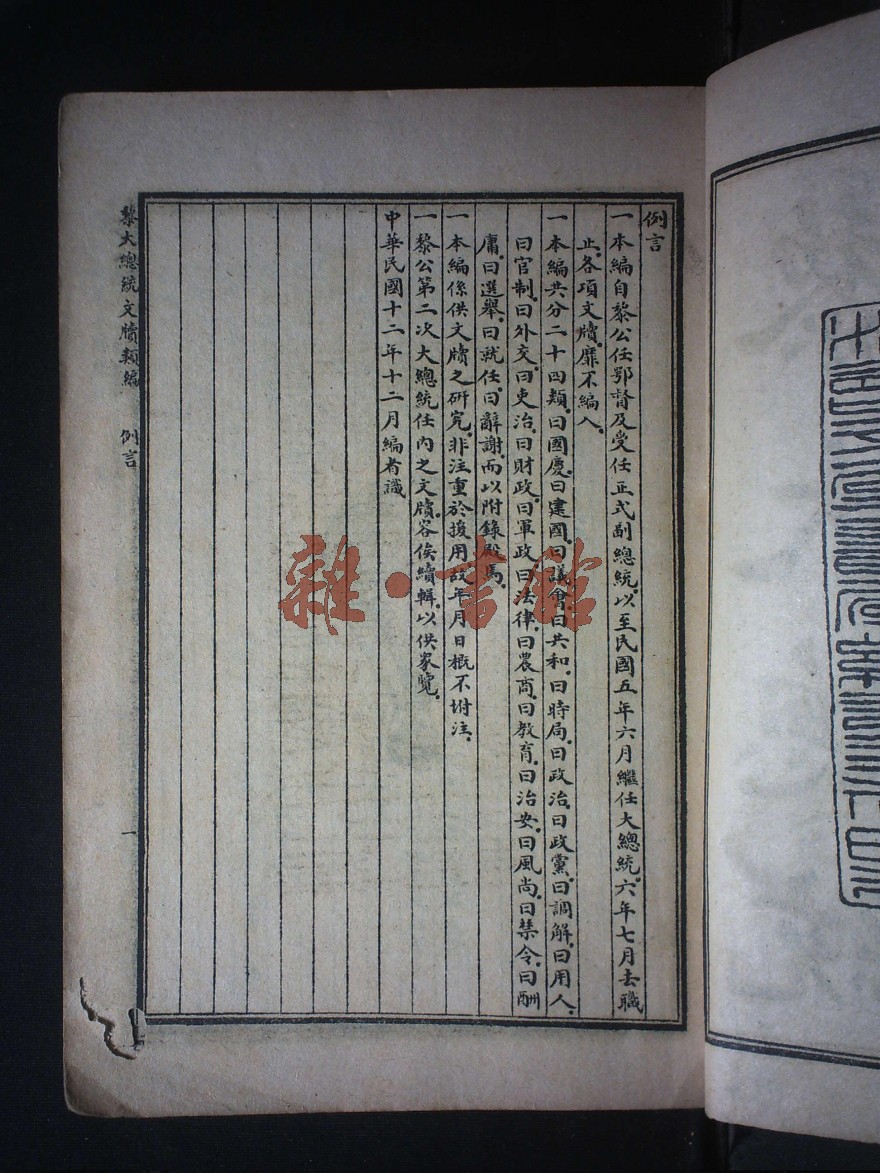 例言
一本編自黎公任鄂督及受任正式副總統。以至民國五年六月繼任大總統。六年七月去職
止。各項文牘。靡不編入。
一本編共分二十四類。曰國慶。曰建國。曰議會。曰共和。曰時局。曰政治。曰政黨。曰調解。曰用人。
曰官制。曰外交。曰吏治。曰財政。曰軍政。曰法律。曰農商。曰教育。曰治安。曰風尚。曰禁令。曰酬
庸。曰選舉。曰就任。曰辭謝。而以附錄殿焉。
一本編係供文牘之研究。非注重於援用。故年月日概不坿注。
一黎公第二次大總統任內之文牘。容俟續輯。以供眾覽。
中華民國十二年十二月編者識
黎大總統文牘類編 例言
一
雜·書館